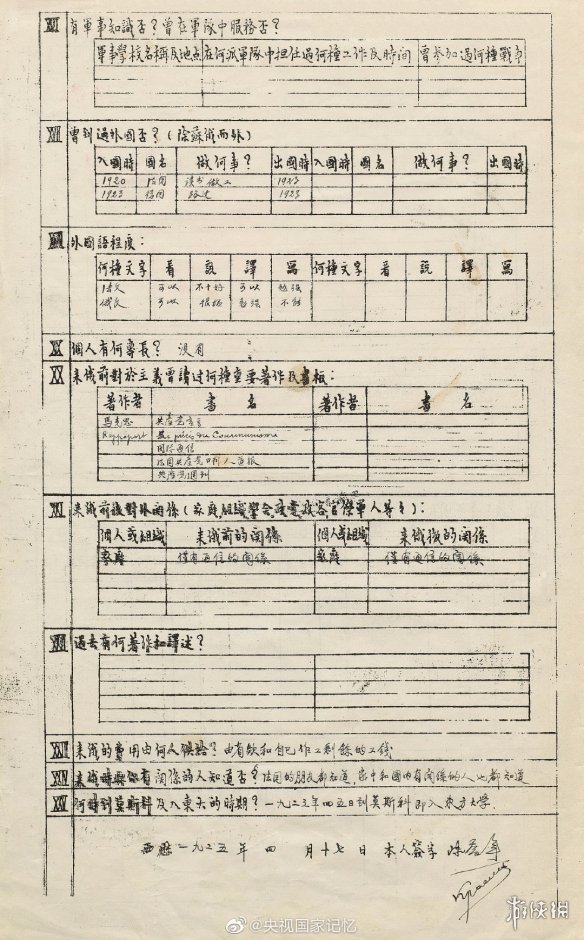 XVI 有軍事知識否？曾在軍隊中服務否？
軍事學校名稱及地点 在何派軍隊中担任過何種工作及時间 曾参加過何種戰事
XVII 曾到過外國否？(除蘇俄而外)
入國時 國名 做何事？ 出國時 入國時 國名 做何事？ 出國時
1920 法国 读书做工 1923
1923 德国 路过 1923
外國語程度：
何種文字 看 說 譯 寫 何種文字 看 説 譯 寫
法文 可以 不十好 可以 勉强
俄文 可以 很坏 勉强 不能
個人有何專長？ 没有
XX 来俄前對於主義曾讀过何種重要著作及書板：
著作者 書名 著作者 書名
馬克思 共產党宣言
Rappoport Précis du Communisme
国际通信
法国共產党中央人道报
共產党週刊
XXI 来俄前後對外関係
個人或組織 来俄前的関係 個人或組織 来俄後的関係
家庭 僅有通信的関係 家庭 僅有通信的関係
過去有何著作和譯述？
来俄的費用由何人供給？由自己作工剩餘的工钱
関係的人知道否？法国的朋友都知道，家中和国内有関係的人也都知道
何時到莫斯科及入東大的時期？一九二三年四五日到莫斯科即入東方大學．
西歷一九二五年 四 月十七日 本人簽字
@央视国家记忆
游侠网